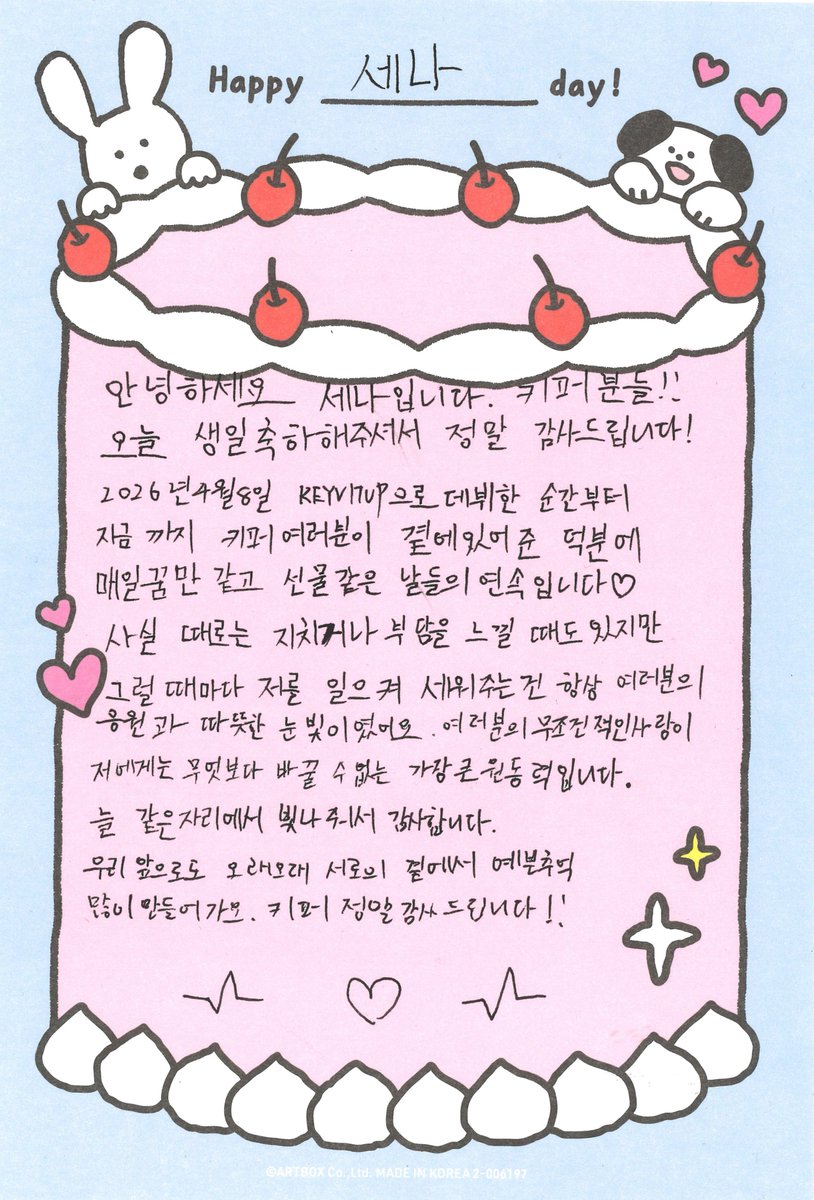 Happy 세나 day!
안녕하세요 세나입니다. 키퍼분들!!
오늘 생일축하해주셔서 정말 감사드립니다!
2026년4월8일 KEYVITUP으로 데뷔한 순간부터
지금 까지 키퍼여러분이 곁에있어 준 덕분에
매일꿈만 같고 선물같은 날들의 연속입니다♡
사실 때로는 지치거나 부담을 느낄 때도 있지만
그럴 때마다 저를 일으켜 세워주는건 항상 여러분의
응원과 따뜻한 눈빛이였어요. 여러분의 무조건적인사랑이
저에게는 무엇보다 바꿀 수없는 가장큰원동력입니다.
늘 같은자리에서 빛나 주셔서 감사합니다.
우리 앞으로도 오래오래 서로의 곁에서 예쁜추억
많이 만들어가요. 키퍼 정말감사드립니다!!
©ARTBOX Co.,Ltd. MADE IN KOREA 2-006197